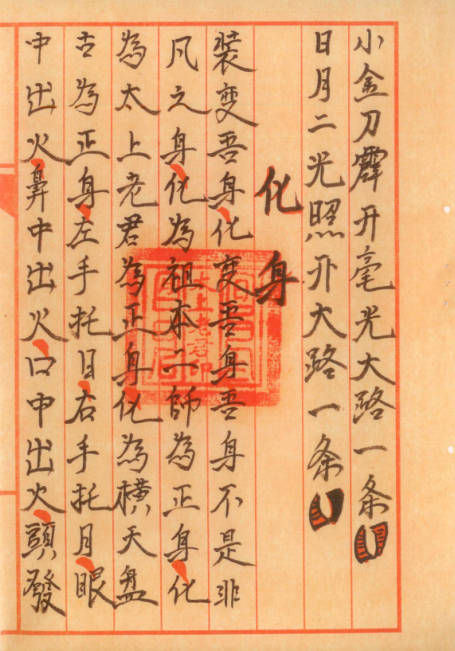 小金刀霹开毫光大路一条
日月二光照开大路一条
化身
装变吾身化变吾身吾身不是非
凡之身化为祖本二師为正身化
為太上老君為正身化為横天盤
古為正身左手托日右手托月眼
中出火鼻中出火口中出火頭發